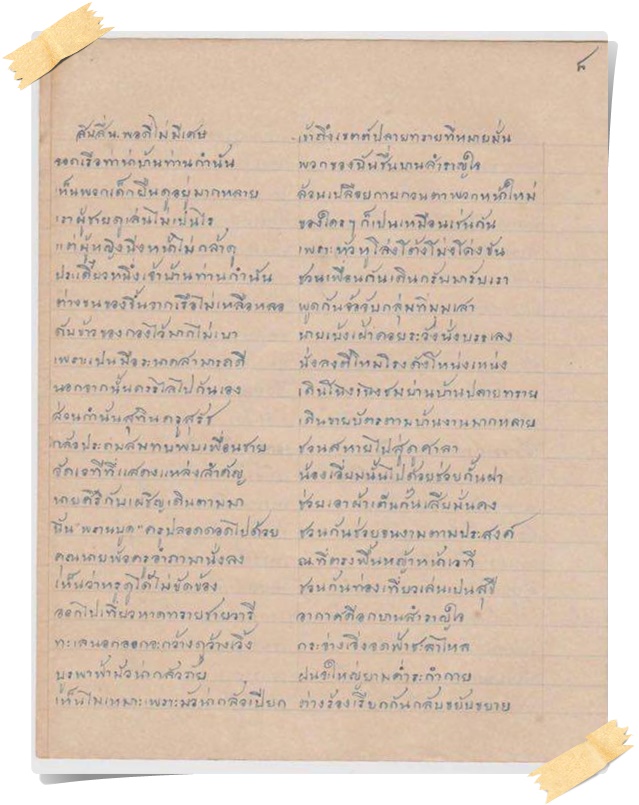 ๕
สิบสี่น.พอดีไม่มีเศษ เข้าถึงเขตต์ปลายทรายที่หมายมั่น
จอดเรือท่าหน้าบ้านท่านกำนัน พวกของฉันชื่นบานสำราญใจ
เห็นพวกเด็กยืนดูอยู่มากหลาย ล้วนเปลือยกายกวนตาพวกหน้าใหม่
เราผู้ชายดูเล่นไม่เป็นไร ของใครๆก็เป็นเหมือนเช่นกัน
แต่ผู้หญิงนิ่งหน้าไม่กล้าดู เพราะหัวหู
ประเดี๋ยวหนึ่งเจ้าบ้านท่านกำนัน ชวนเพื่อนกันเดินกรับมารับเรา
ต่างขนของขึ้นจากเรือไม่เหลือหลอ พูดกันจ้อจับกลุ่มที่มุมเสา
ดับข้าวของกองไว้มากไม่เบา นายเน้งเฝ้าคอยระวังนั่งบรรเลง
เพราะเป็นมือระนาดสามารถดี นั่งลงตีโหมโรงดังโหน่งเหน่ง
นอกจากนั้นครรไลไปกันเอง เดินโฉงเฉงชมย่านบ้านปลายทราย
ส่วนกำนันสุทินครูสรัช เดินขายบัตรตามบ้านงานมากหลาย
กลัวประถมสมทบพบเพื่อนชาย ชวนสหายไปสู่ดูศาลา
จัดเวทีที่แสดงแหล่งสำคัญ น้องเอี่ยมนั้นไปด้วยช่วยกั้นฝา
นายคีรีกับเผชิญเดินตามมา ช่วยเอาผ้าเต็นท์กั้นเสียมั่นคง
ฉัน"พรานบูด"ครูปลอดดอดไปด้วย ชวนกันช่วยจนงามตามประสงค์
คุณนายพัวครูอำภามานั่งลง ณที่ตรงพื้นหญ้าหน้าเวที
เห็นว่าหรูดูได้ไม่ขัดข้อง ชวนกันท่องเที่ยวเล่นเป็นสุขี
ออกไปเที่ยวหาดทรายชายวารี อากาศดีเบิกบานสำราญใจ
ทะเลนอกออกจะกว้างดูว้างเวิ้ง กระจ่างเจิ่งจดฟ้าชลาไหล
บูรพาฟ้ามัวน่ากลัวภัย ฝนจะใหญ่ยามค่ำระกำกาย
เห็นไม่เหมาะเพราะมัวน่ากลัวเปียก ต่างร้องเรียกกันกลับขยับขยาย